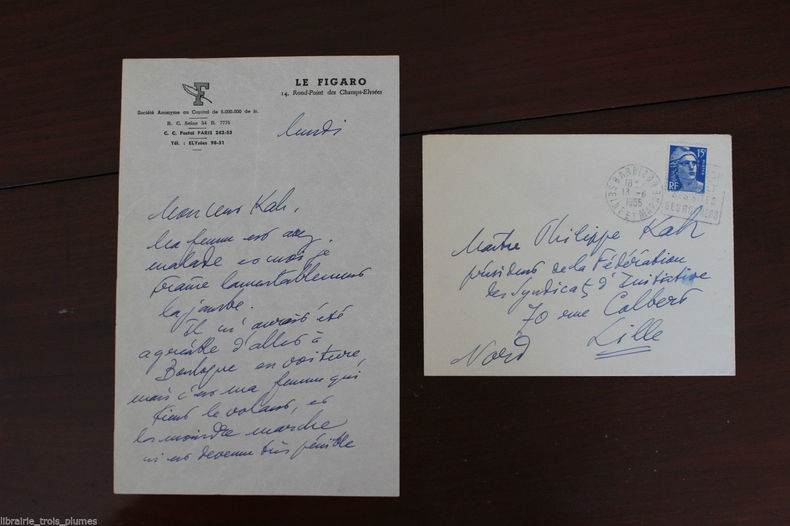 F
LE FIGARO
14, Rond-Point des Champs-Elysées
Société Anonyme au Capital de 6.000.000 de fr.
R. C. Seine 54 B. 7775
C. C. Postal PARIS 242-53
Tél. : ELYsées 98-31
lundi
Monsieur Kah,
Ma femme est
malade et moi je
traîne lamentablement
la jambe.
Il m'aurait été
agréable d'aller à
Boulogne en voiture,
mais c'est ma femme qui
tient le volant, et
la moindre marche
m'est devenue très pénible
15F
RF
BARBIZON
18
13 - 6
1955
SEINE ET MARNE
Maître Philippe Kah
président de la Fédération
des Syndicats d'Initiative
70 rue Colbert
Lille
Nord
librairie_trois_plumes